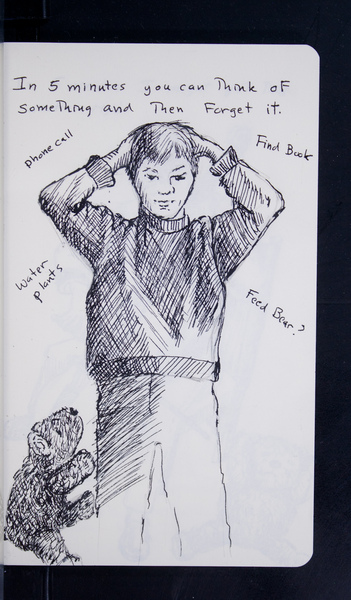 In 5 minutes you can Think of
something and Then Forget it.
phone call
Find Book
Water
plants
Feed Bear?